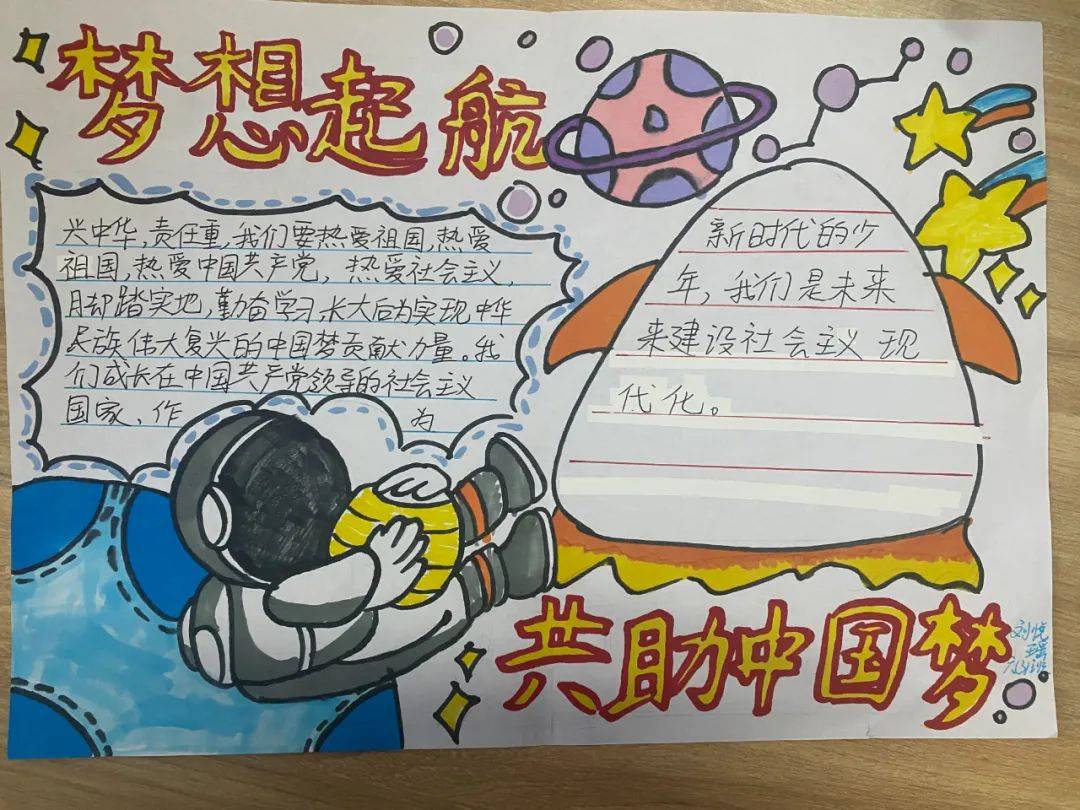 梦想起航
兴中华,责任重,我们要热爱祖国,热爱
祖国,热爱中国共产党,热爱社会主义,
脚踏实地,勤奋学习,长大后为实现中华
民族伟大复兴的中国梦贡献力量。我
们成长在中国共产党领导的社会主义
国家、作 为
新时代的少
年,我们是未来
来建设社会主义现
代化。
共助中国梦
刘悦
瑶